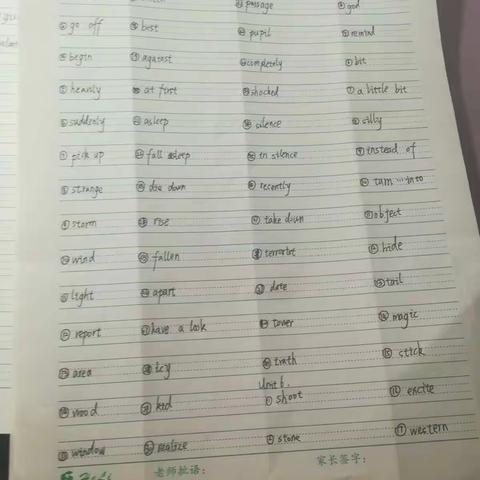 passage
god
go off
best
pupil
remind
begin
against
completely
bit
heavily
at first
shocked
a little bit
suddenly
asleep
silence
silly
pick up
fall asleep
in silence
instead of
strange
die down
recently
turn...into
storm
rise
take down
object
wind
fallen
terrorist
hide
light
apart
date
tail
report
have a look
tower
magic
area
icy
truth
stick
Unit 6.
wood
kid
shoot
excite
window
realize
stone
western
老师批语：
家长签字：